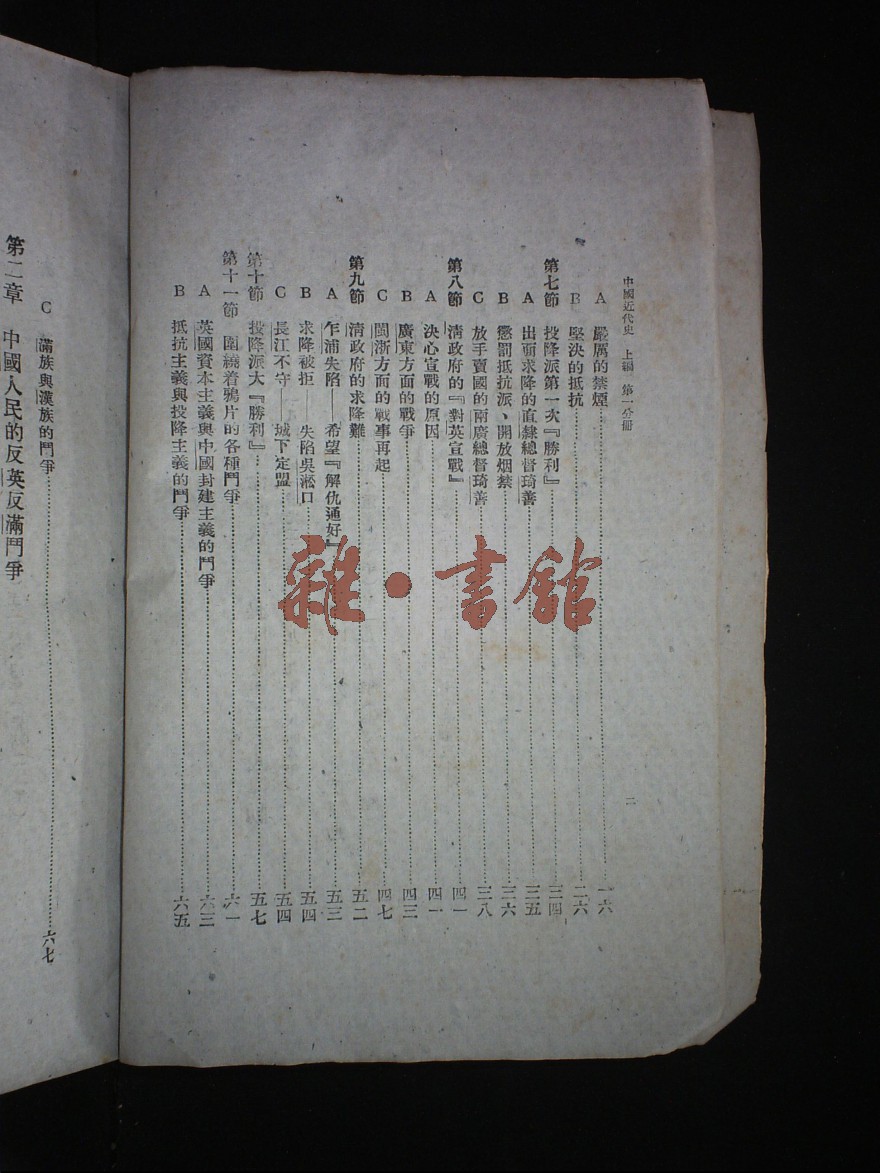 中國近代史 上編 第一分冊
二
A 嚴厲的禁煙 一六
B 堅決的抵抗 二六
第七節 投降派第一次『勝利』 三四
A 出面求降的直隸總督琦善 三五
B 懲罰抵抗派、開放烟禁 三六
C 放手賣國的兩廣總督琦善 三八
第八節 清政府的『對英宣戰』 四一
A 決心宣戰的原因 四一
B 廣東方面的戰爭 四三
C 閩浙方面的戰事再起 四七
第九節 清政府的求降難 五二
A 乍浦失陷——希望『解仇通好』 五三
B 求降被拒——失陷吳淞口 五四
C 長江不守——城下定盟 五四
第十節 投降派大『勝利』 五七
第十一節 圍繞着鴉片的各種鬥爭 六一
A 英國資本主義與中國封建主義的鬥爭 六三
B 抵抗主義與投降主義的鬥爭 六五
C 滿族與漢族的鬥爭 六七
第二章 中國人民的反英反滿鬥爭
雜·書館